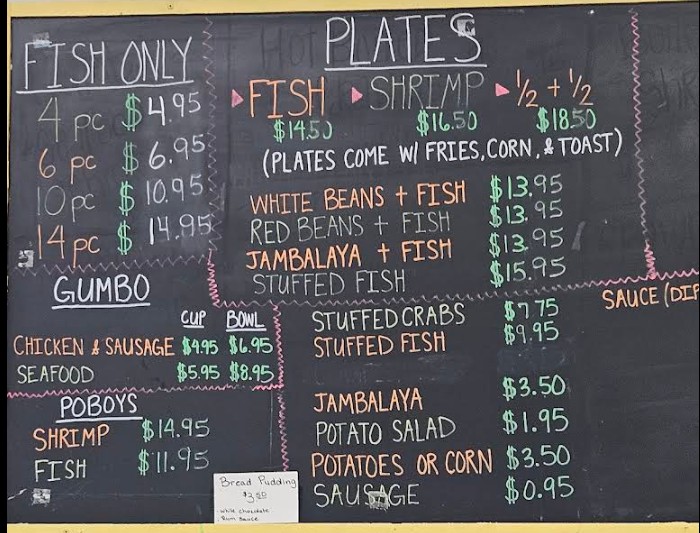 FISH ONLY
4 pc $4.95
6 pc $6.95
10 pc $10.95
14 pc $14.95
PLATES
FISH SHRIMP 1/2 + 1/2
$14.50 $16.50 $18.50
(PLATES COME W/ FRIES, CORN, & TOAST)
WHITE BEANS + FISH $13.95
RED BEANS + FISH $13.95
JAMBALAYA + FISH $13.95
STUFFED FISH $15.95
GUMBO
CUP BOWL
CHICKEN & SAUSAGE $4.95 $6.95
SEAFOOD $5.95 $8.95
POBOYS
SHRIMP $14.95
FISH $11.95
STUFFED CRABS $7.75
STUFFED FISH $9.95
JAMBALAYA $3.50
POTATO SALAD $1.95
POTATOES OR CORN $3.50
SAUSAGE $0.95
SAUCE (DIP
Bread Pudding
$3.50
- White Chocolate
- Rum Sauce